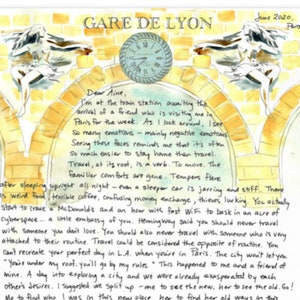 June 2020,
Paris
GARE DE LYON
Dear Aine,
I'm at the train station awaiting the
arrival of a friend who is visiting me in
Paris for the week. As I look around, I see
so many emotions - mainly negative emotions.
Seeing these faces reminds me that it's often
so much easier to stay home than travel.
Travel, at its root, is a verb. To move. The
familiar comforts are gone. Tempers flare
after sleeping upright all night - even a sleeper car is jarring and stiff. There
is weird food, terrible coffee, confusing money exchange, thieves lurking. You actually
start to crave a McDonalds and an hour with fast WiFi to bask in an acre of
cyberspace... a little embassy of you. Hemingway said you should never travel
with someone you don't love. You should also never travel with someone who is very
attached to their routine. Travel could be considered the opposite of routine. You
can't recreate your perfect day in L.A. when you're in Paris. The city won't let you.
"You're under my roof, you'll go by my rules." This happened to me and a friend of
mine. A day into exploring a city and we were already exasperated by each
other's desires. I suggested we split up - me to see the new, her to see the old. So!
Me to find who I was in this new place, her to find her old ways in this